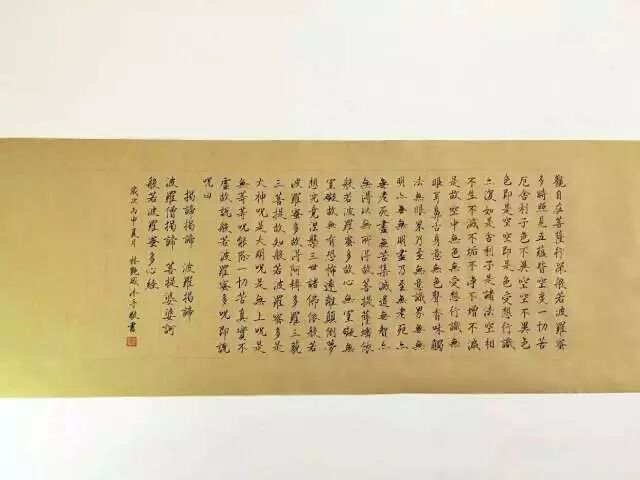 觀自在菩薩行深般若波羅蜜
多時照見五蘊皆空度一切苦
厄舍利子色不異空空不異色
色即是空空即是色受想行識
亦復如是舍利子是諸法空相
不生不滅不垢不淨不增不減
是故空中無色無受想行識無
眼耳鼻舌身意無色聲香味觸
法無眼界乃至無意識界無無
明亦無無明盡乃至無老死亦
無老死盡無苦集滅道無智亦
無得以無所得故菩提薩埵依
般若波羅蜜多故心無罣礙無
罣礙故無有恐怖遠離顛倒夢
想究竟涅槃三世諸佛依般若
波羅蜜多故得阿耨多羅三藐
三菩提故知般若波羅蜜多是
大神咒是大明咒是無上咒是
無等等咒能除一切苦真實不
虛故說般若波羅蜜多咒即說
咒曰
揭諦揭諦 波羅揭諦
波羅僧揭諦 菩提娑婆訶
般若波羅蜜多心經
歲次丙申夏月 林沐手敬書